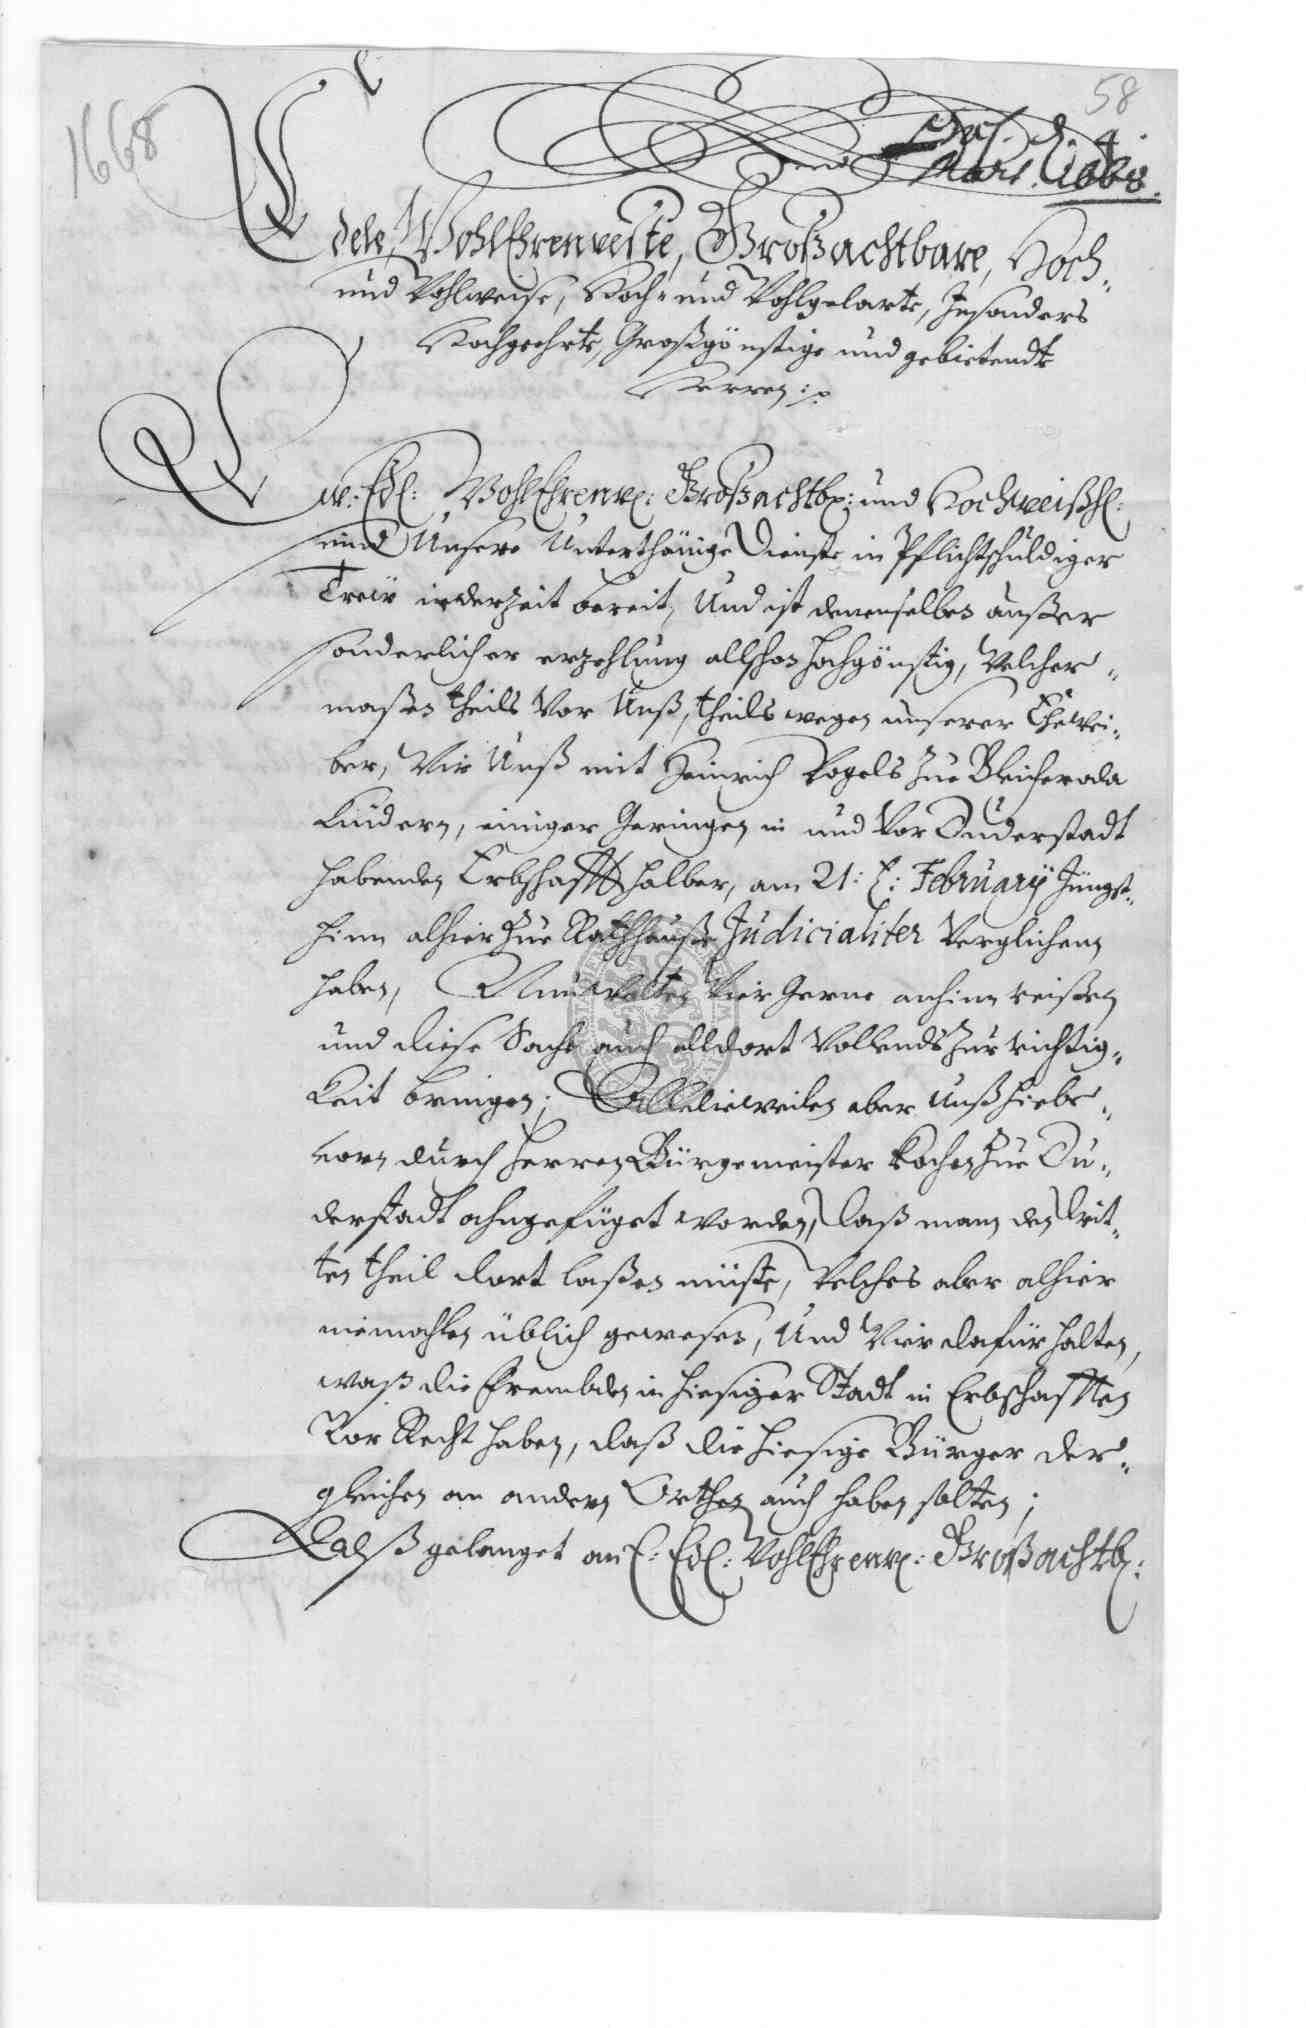 1668
58
d. 4.
Mart. 1668.
Edele, WohlEhrenveste, Großachtbare, Hoch-
und Wohlweise, Hoch- und Wohlgelarte, Insonders
Hochgeehrte, Großgönstige und gebietendte
Herren:
Ew: Edl: WohlEhrenv: Großachtb: und Hochweißh:
sind Unsere Unterthänige Dienste in Pflichtschuldiger
Trew iederzeit bereit, Und ist denenselben außer
sonderlicher erzehlung allschon hochgönstig, Welcher-
maßen theils Vor Unß, theils wegen unserer Ehewei-
ber, Wir Unß mit Heinrich Vogels Zue Bleicheroda
Kindern, einiger Geringen in und Vor Duderstadt
habenden Erbschafft halber, am 21: t: February Jüngst-
hinn alhier Zue Rathhauße Judicialiter Verglichenn
haben, Nun wolten Wir Gerne anhinn reißen
und diese Sache auch alldort Vollends Zur richtig-
keit bringen; Alldieweilen aber Unß hiebe-
vorn durch Herren Bürgemeister Kochen Zue Du-
derstadt ahngefüget worden, daß mann den drit-
ten theil dort laßen müste, Welches aber alhier
niemahlen üblich gewesen, Und Wir dafür halten,
waß die frembden in hiesiger Stadt in Erbschafften
Vor Recht haben, daß die hiesige Bürger der-
gleichen an andern Orthen auch haben solten;
Alß gelanget an E: Edl: WohlEhrenv: Großachtb: